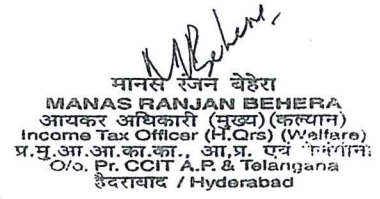 M Behera
मानस रंजन बेहेरा
MANAS RANJAN BEHERA
आयकर अधिकारी (मुख्य) (कल्यान)
Income Tax Officer (H.Qrs) (Welfare)
प्र.मु.आ.आ.का.का., आ,प्र. एवं
O/o. Pr. CCIT A.P. & Telangana
हैदराबाद / Hyderabad